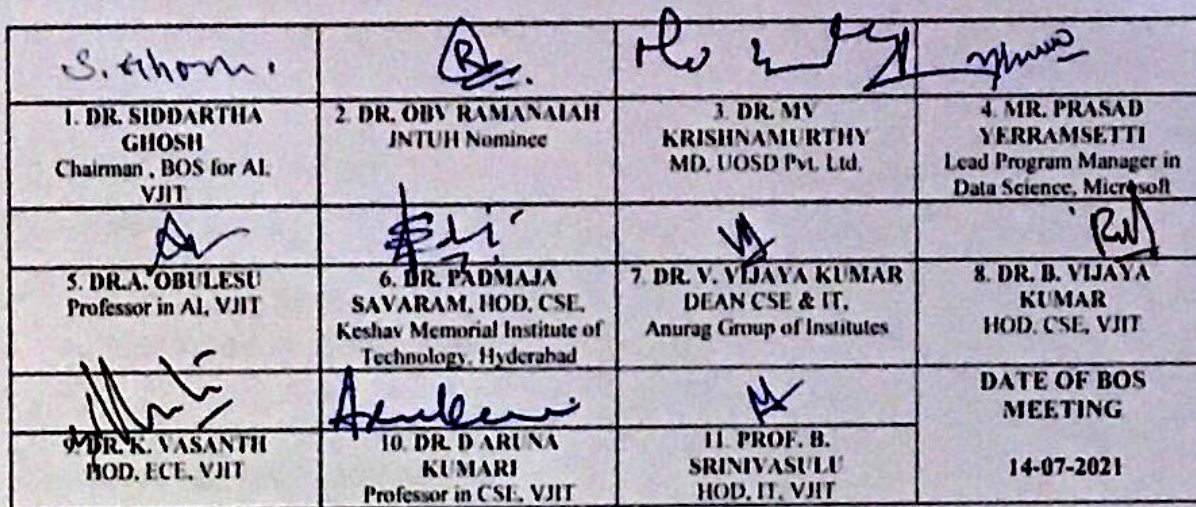 S. Ghosh.
1. DR. SIDDARTHA
GHOSH
Chairman , BOS for AI.
VJIT
2. DR. OBV RAMANAIAH
JNTUH Nominee
3. DR. MV
KRISHNAMURTHY
MD. UOSD Pvt. Ltd.
4. MR. PRASAD
YERRAMSETTI
Lead Program Manager in
Data Science, Microsoft
5. DR.A. OBULESU
Professor in AI, VJIT
6. DR. PADMAJA
SAVARAM, HOD, CSE,
Keshav Memorial Institute of
Technology, Hyderabad
7. DR. V. VIJAYA KUMAR
DEAN CSE & IT,
Anurag Group of Institutes
8. DR. B. VIJAYA
KUMAR
HOD, CSE, VJIT
9. DR. K. VASANTH
HOD, ECE, VJIT
10. DR. D ARUNA
KUMARI
Professor in CSE, VJIT
11. PROF. B.
SRINIVASULU
HOD, IT, VJIT
DATE OF BOS
MEETING
14-07-2021